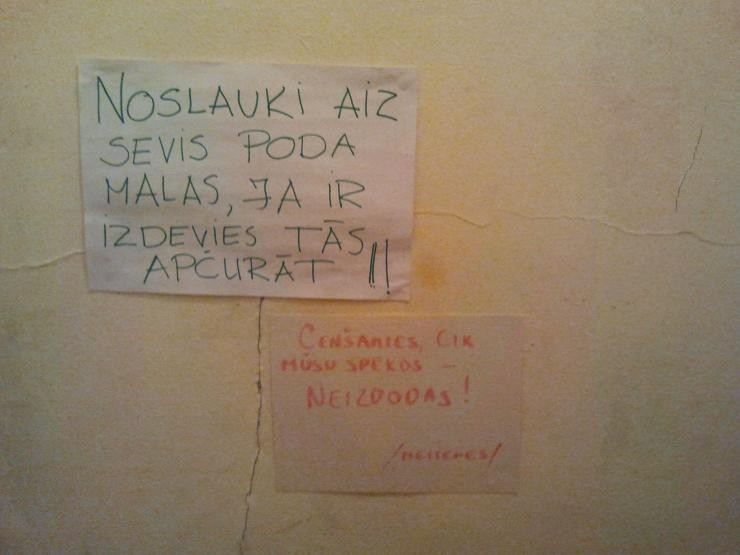 NOSLAUKI AIZ
SEVIS PODA
MALAS, JA IR
IZDEVIES TĀS
APČURĀT !!
CENŠAMIES, CIK
MŪSU SPĒKOS –
NEIZDODAS!
/MEITENES/